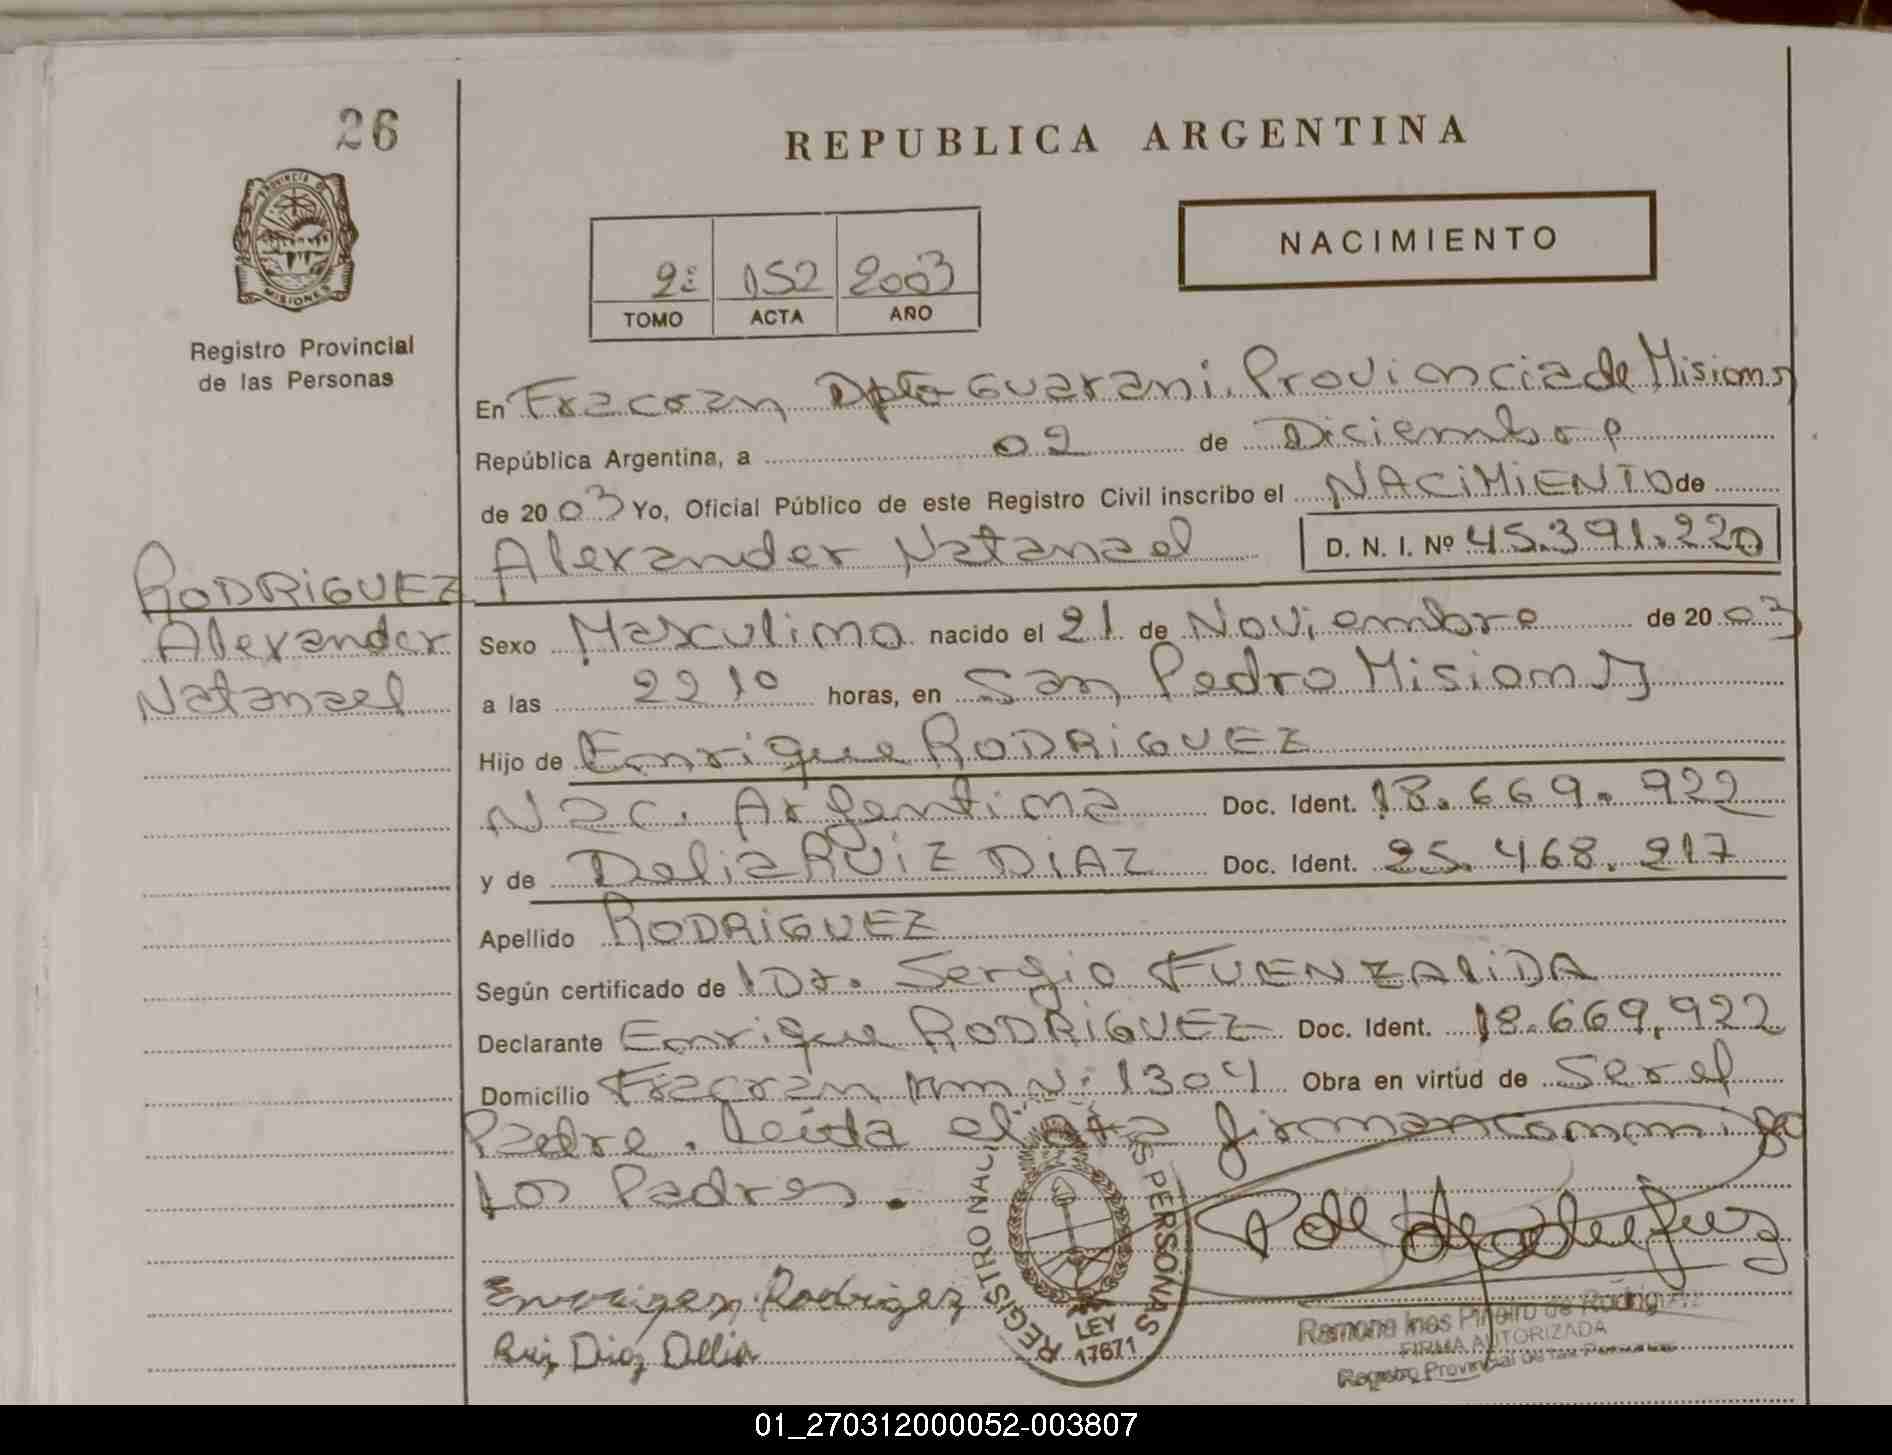 26
REPUBLICA ARGENTINA
PROVINCIA DE
MISIONES
Registro Provincial
de las Personas
NACIMIENTO
2: 152 2003
TOMO ACTA AÑO
En Fracran Dpto Guarani. Provinciade Misiones
República Argentina, a 02 de Diciembre
de 2003 Yo, Oficial Público de este Registro Civil inscribo el NACIMIENTO de
Alexander Natanael D. N. I. Nº 45.391.220
RODRIGUEZ
Alexander
Natanael
Sexo Masculino nacido el 21 de Noviembre de 2003
a las 2210 horas, en San Pedro Misiones
Hijo de Enrique RODRIGUEZ
Nac. Argentina Doc. Ident. 18.669.922
y de Delia RUIZ DIAZ Doc. Ident. 25.468.217
Apellido RODRIGUEZ
Según certificado de l Dr. Sergio FUENZALIDA
Declarante Enrique RODRIGUEZ Doc. Ident. 18.669.922
Domicilio Fracran Km N: 1304 Obra en virtud de Ser el
Padre. Leida el acta firman conmigo
Los Padres.
REGISTRO NACI S PERSONAS
LEY
17671
Rodrigez
Ruiz Diaz Delia
Ramona Ines Piñeiro de Rodriguez
FIRMA AUTORIZADA
Registro Provincial de las Personas
01_270312000052-003807